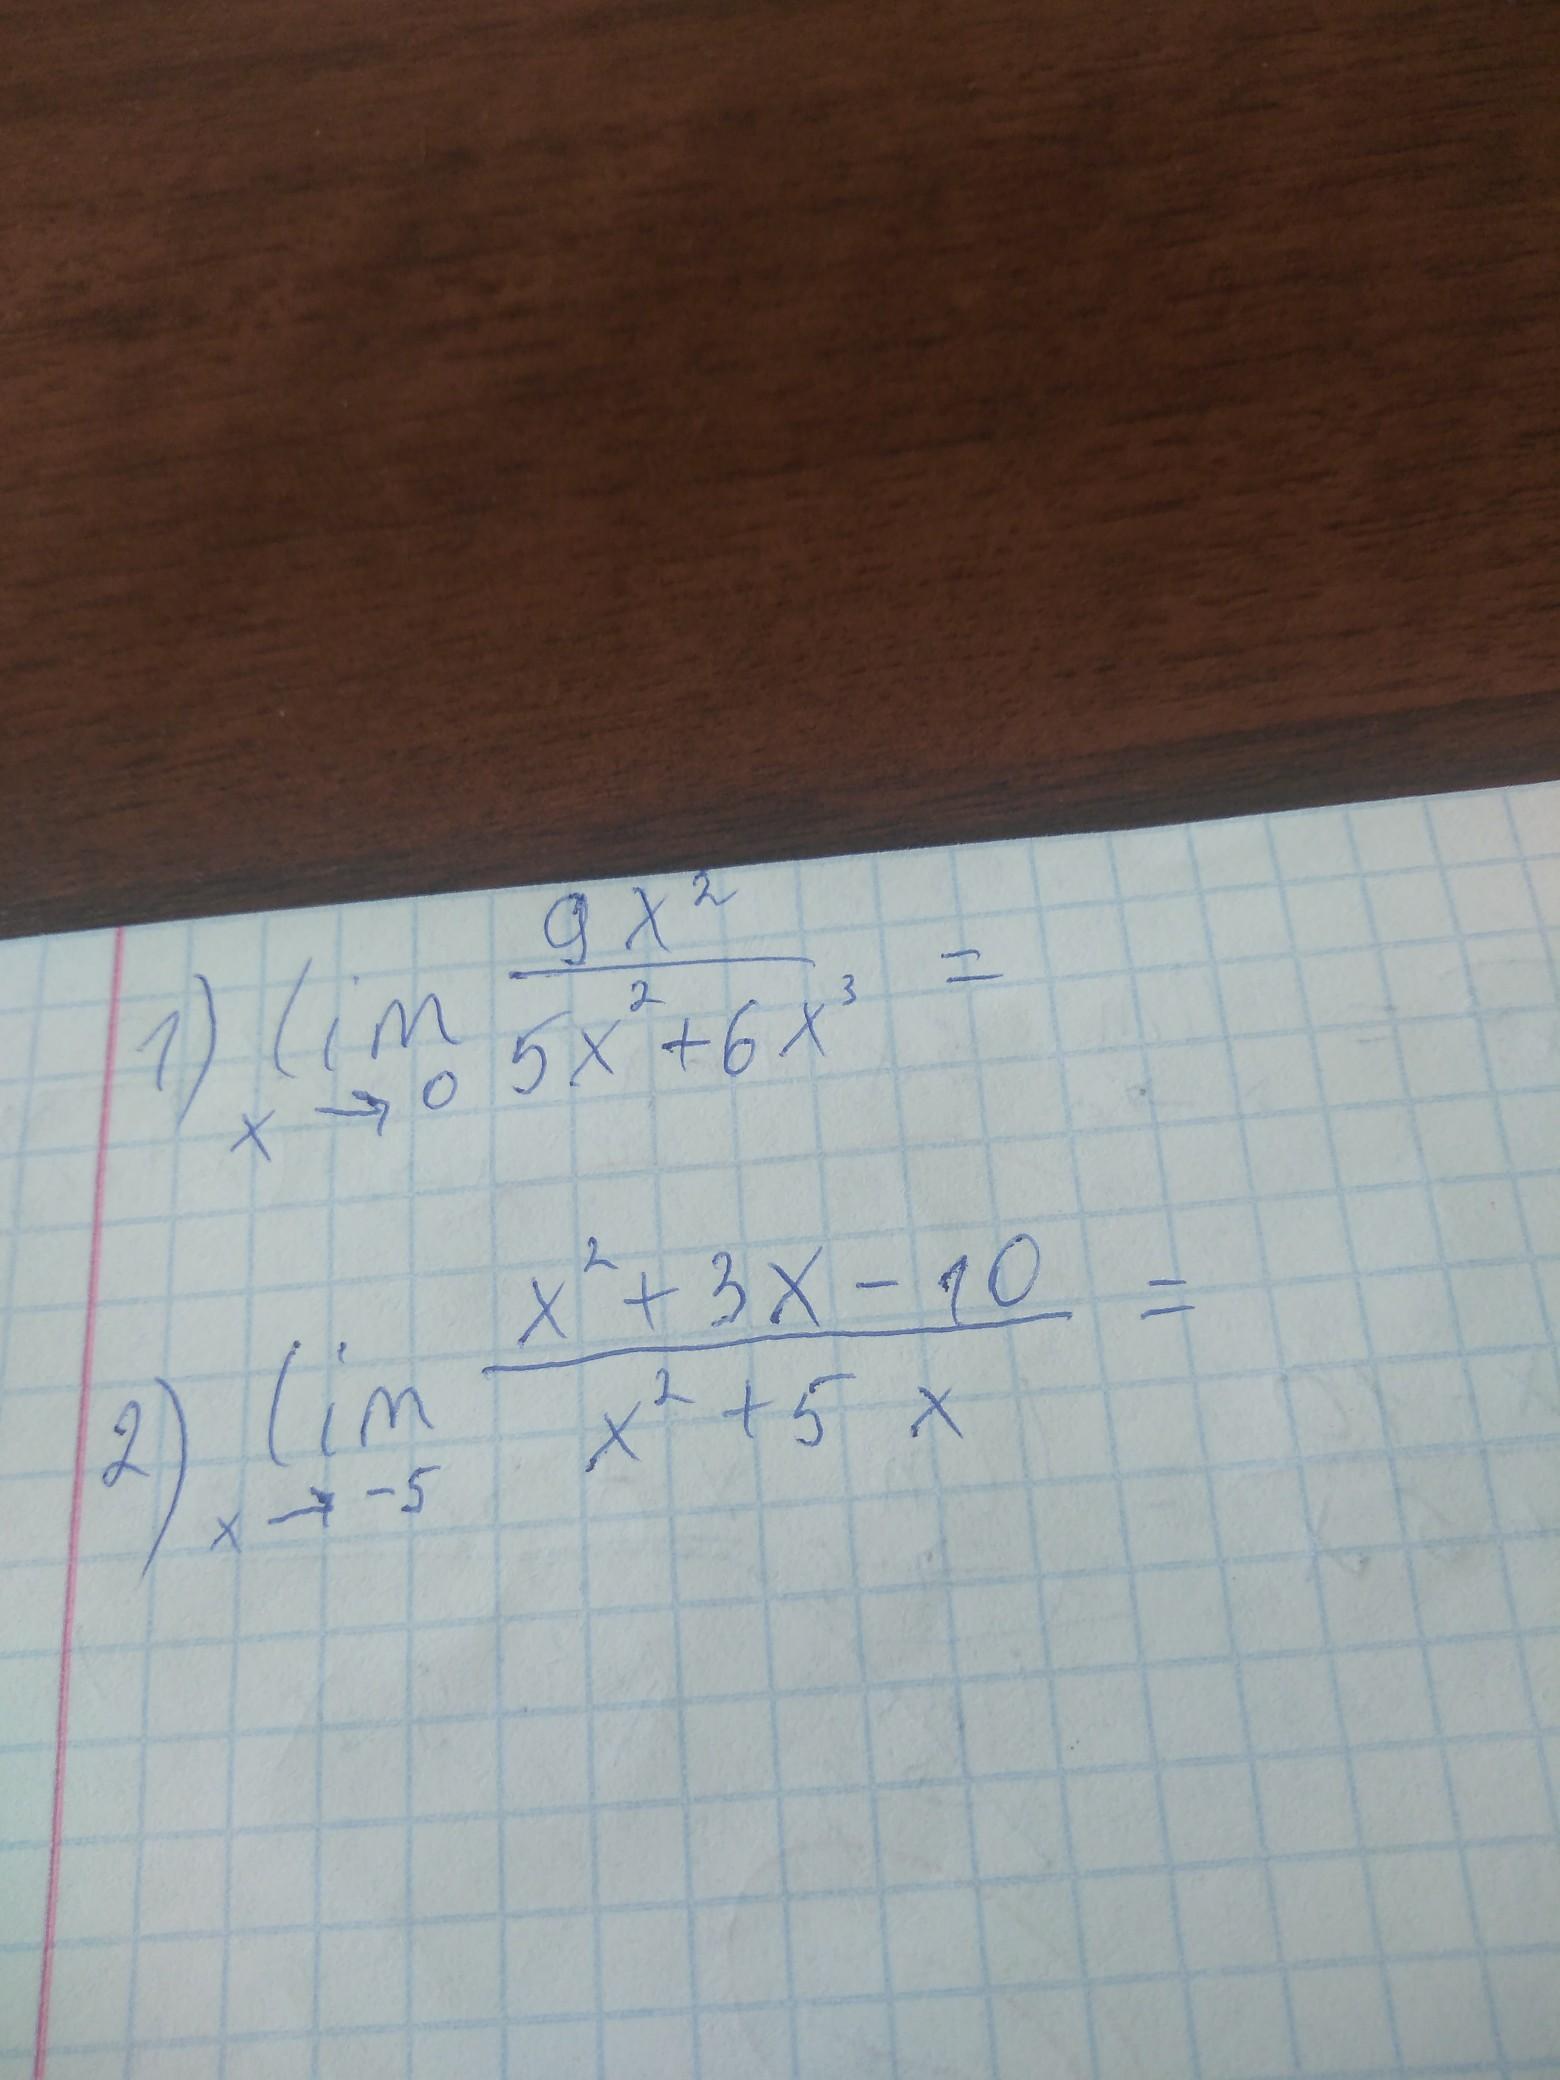 1) lim x→0 9x²/(5x²+6x³) =
2) lim x→-5 (x²+3x-10)/(x²+5x) =